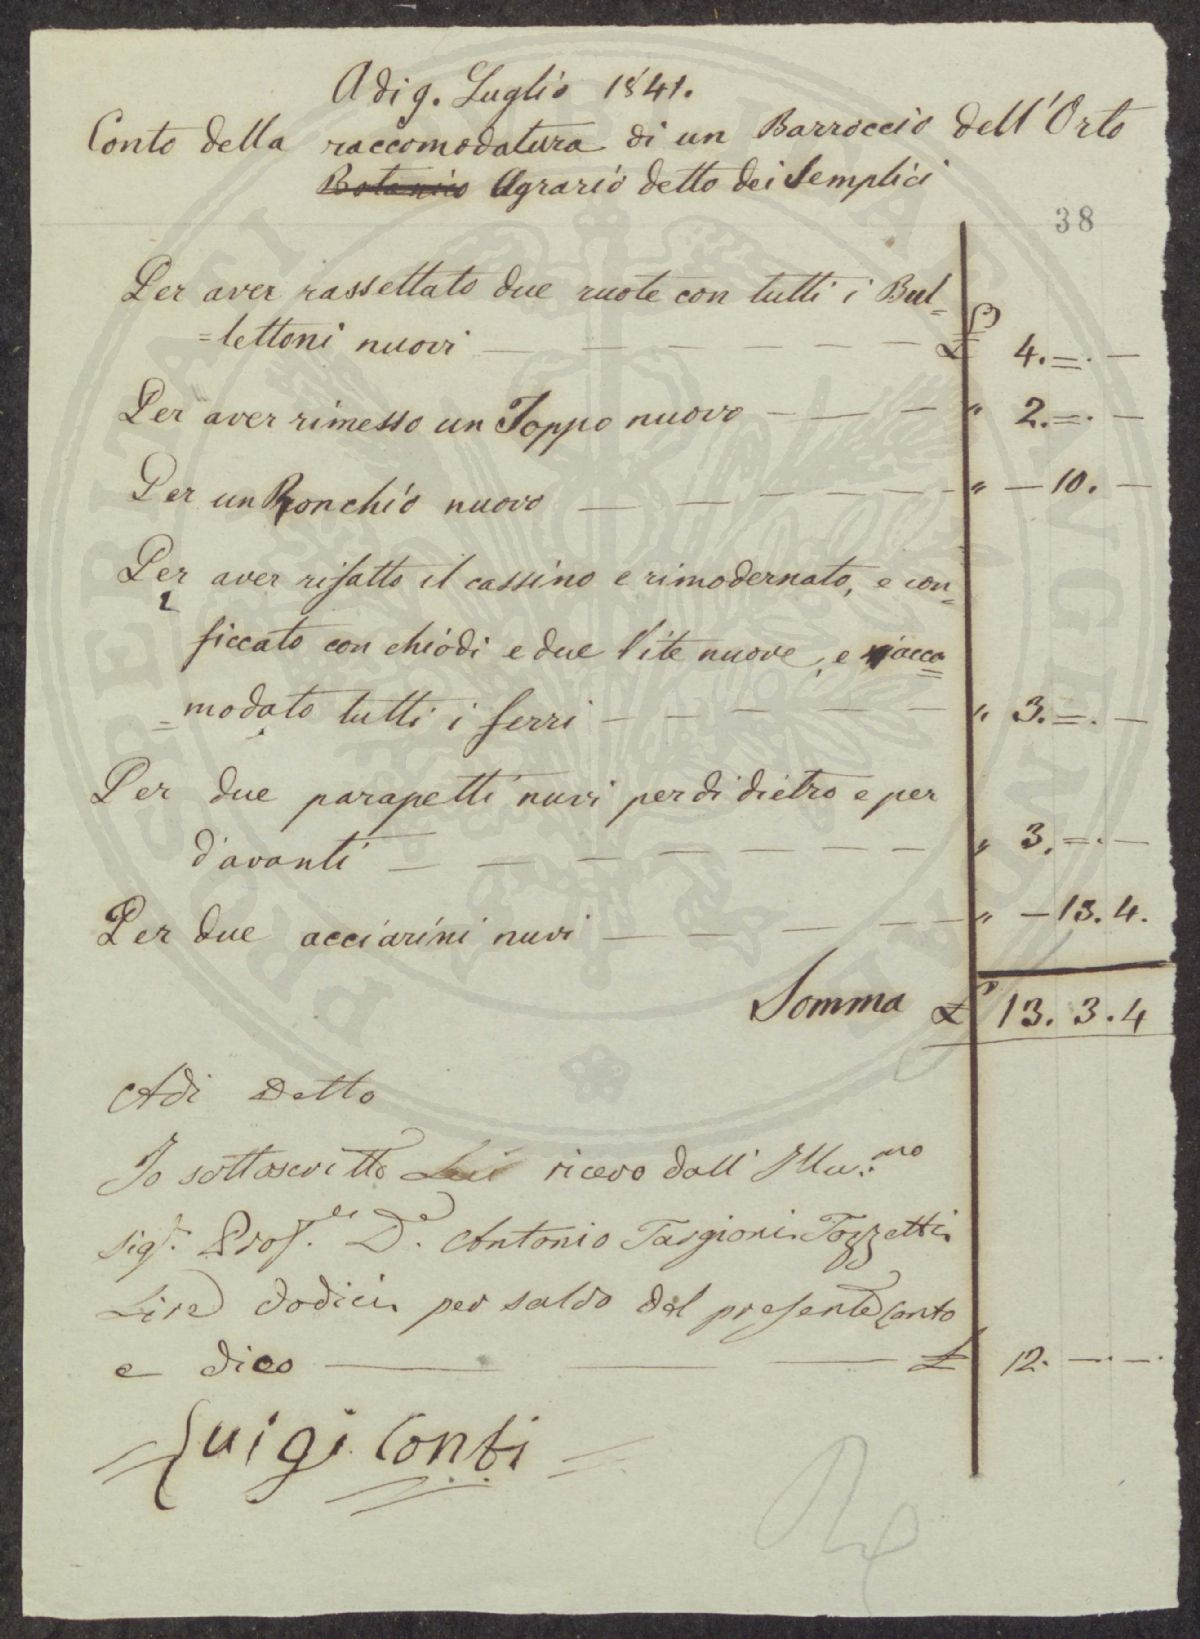 Adi 9. Luglio 1841.
Conto della raccomodatura di un Barroccio dell'Orto
Botanico Agrario detto dei Semplici
38
Per aver rassettato due ruote con tutti i Bul=
=lettoni nuovi — — — — — — £ 4.=.—
Per aver rimesso un Toppo nuovo — — — " 2.=.—
Per un Ronchio nuovo — — — — — " — 10. —
Per aver rifatto il cassino e rimodernato, e con=
ficcato con chiodi e due Vite nuove, e riacco=
=modato tutti i ferri — — — — — " 3.=.—
Per due parapetti nuvi per di dietro e per
d'avanti — — — — — — — " 3.=.—
Per due acciarini nuvi — — — — — " — 13. 4.
Somma £ 13. 3. 4
Adi Detto
Io sottoscritto ricevo dall' Illu.mo
Sig.r Prof.re D.e Antonio Targioni Tozzetti
Lire dodici per saldo del presente Conto
e dico — — — £ 12. — —
Luigi Conti
PROSPERITATI PUBLICAE AUGENDAE